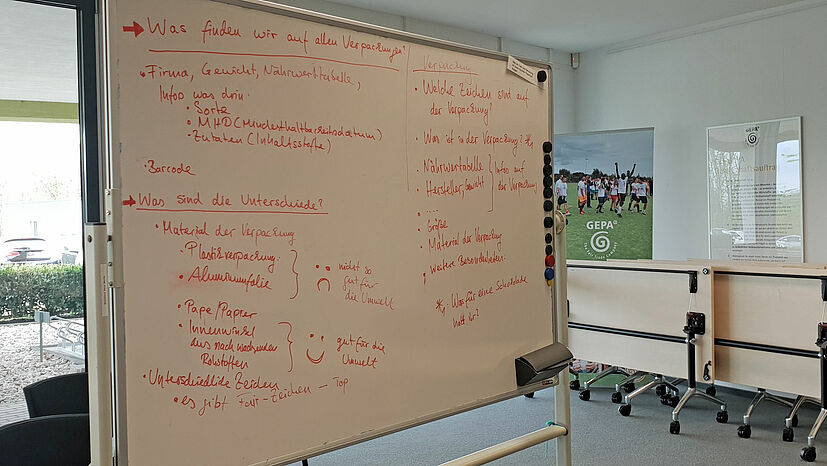 → Was finden wir auf allen Verpackungen?
• Firma, Gewicht, Nährwerttabelle,
Infos was drin:
• Sorte
• MHD (Mindesthaltbarkeitsdatum)
• Zutaten (Inhaltsstoffe)
• Barcode
→ Was sind die Unterschiede?
• Material der Verpackung
• Plastikverpackung:
• Aluminiumfolie
nicht so
gut für
die Umwelt
• Pape/Papier
• Innenwickel
aus nachwachsenden
Rohstoffen
gut für die
Umwelt
• Unterschiedliche Zeichen
• es gibt Fair-Zeichen – Top
Verpackung
• Welche Zeichen sind auf
der Verpackung?
• Was ist in der Verpackung? *)
• Nährwertabelle
• Hersteller, Gewicht
Infos auf
der Verpackung
• ....
• Größe
• Material der Verpackung
• weitere Besonderheiten:
*) Was für eine Schokolade
habt ihr?
GEPA
GEPA